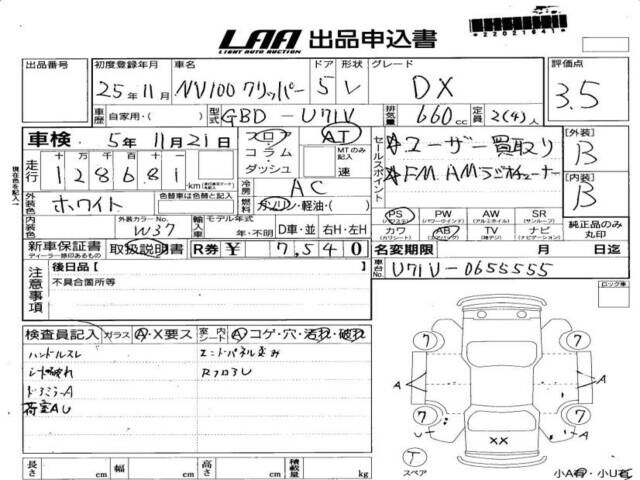 LAA 出品申込書
LIGHT AUTO AUCTION
22021641
出品番号 初度登録年月 車名 ドア 形状 グレード 評価点
25年11月 NV100クリッパー 5 V DX 3.5
車歴 自家用・( ) 型式 GBD - U71V 排気量 660cc 定員 2(4)人
車検 5年11月21日 フロア AT セールスポイント ☆ユーザー買取り [外装] B
コラム MTのみ記入
走行 十 万 千 百 十 一 128681 km ダッシュ 速 ☆FM.AMラジオチューナー
現在色を記入
冷房 AC [内装] B
外装色 ホワイト 色替車は色替色 燃料 ガソリン・軽油・( )
外装カラーNo. W37 輸入車 モデル年式 年・不明 D車・並 右H・左H
PS PW AW SR
(パワステ) (パワーウインド) (アルミホイル) (サンルーフ)
カワ AB TV ナビ 純正品のみ丸印
(カワシート) (エアバッグ) (地デジ) (ナビゲーション)
新車保証書 取扱説明書 R券 ¥ 7,540 名変期限 月 日迄
ディーラー捺印あるもの
車台No. U71V-0655555
注意事項 後日品 [ ]
不具合箇所等
ロック車
検査員記入 ガラス A・X要ス 室内 シート A コゲ・穴・汚れ・破れ
ハンドルスレ エンドパネル歪み
シート破れ RフロアU
荷室AU
7 7
A A
7 7
XX
T
スペア
長さ cm 幅 cm 高さ cm 積載量 kg
小A有・小U有